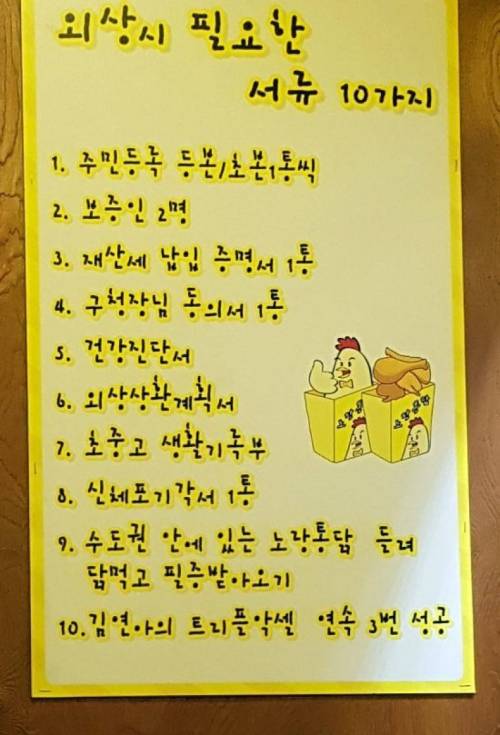 외상시 필요한
서류 10가지
1. 주민등록 등본/초본1통씩
2. 보증인 2명
3. 재산세 납입 증명서 1통
4. 구청장님 동의서 1통
5. 건강진단서
6. 외상상환계획서
7. 초중고 생활기록부
8. 신체포기각서 1통
9. 수도권 안에 있는 노랑통닭 들려
닭먹고 필증받아오기
10. 김연아의 트리플악셀 연속 3번 성공
노랑통닭
노랑통닭